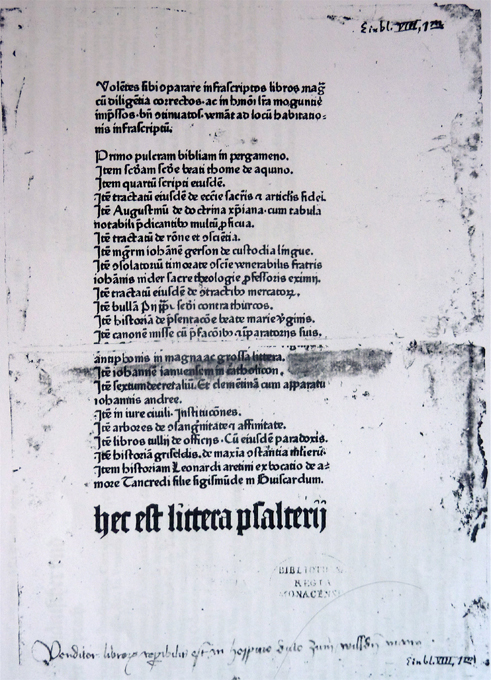 Einbl. VIII, 1 m
Volētes sibi cōparare infrascriptos libros mag̃
cū diligētia correctos. ac in hmōi lr̃a moguntie
imp̃ssos. bñ cōtinuatos. veniāt ad locū habitatio-
nis infrascriptū.
Primo pulcram bibliam in pergameno.
Item scḋam scḋe beati thome de aquino.
Item quartū scripti eiusdē.
Itē tractatū eiusdē de eccīe sacr̃is ⁊ articlis fidei.
Itē Augustinū de doctrina xp̄iana. cum tabula
notabili p̱dicantibꝰ multū ꝓficua.
Itē tractatū de rōne et ↄsciētia.
Itē mgr̃m iohānē gerson de custodia lingue.
Itē ↄsolatoriū timorate ↄscīe venerabilis fratris
iohānis nider sacre theologie ꝓfessoris eximij.
Itē tractatū eiusdē de ↄtractibꝰ mercatoꝝ.
Itē bullā Pij pp̄e scḋi contra thurcos.
Itē historiā de p̄sentacōe beate marie v̓ginis.
Itē canonē misse cū p̄facōibꝰ ⁊ ꝯparatorijs suis.
antiphonis in magna ac grossa littera.
Itē iohannē ianuensem in catholicon.
Itē sextumdecretaliū. Et clemētinā cum apparatu
iohannis andree.
Itē in iure ciuili. Institucōnes.
Itē arbores de ↄsanguinitate ⁊ affinitate.
Itē libros tullij de officijs. Cū eiusdē paradoxis.
Itē historiā griseldis. de maxīa ↄstantia mulierū.
Item historiam Leonardi aretini ex bocatio de a-
more Tancredi filie sigismūde in Guiscardum.
hec est littera psalterij
BIBLIOTHECA
REGIA
MONACENSIS
Venditor librorum reperibilis est in hospicio dicto zum willden mann
Einbl. VIII, 1 m